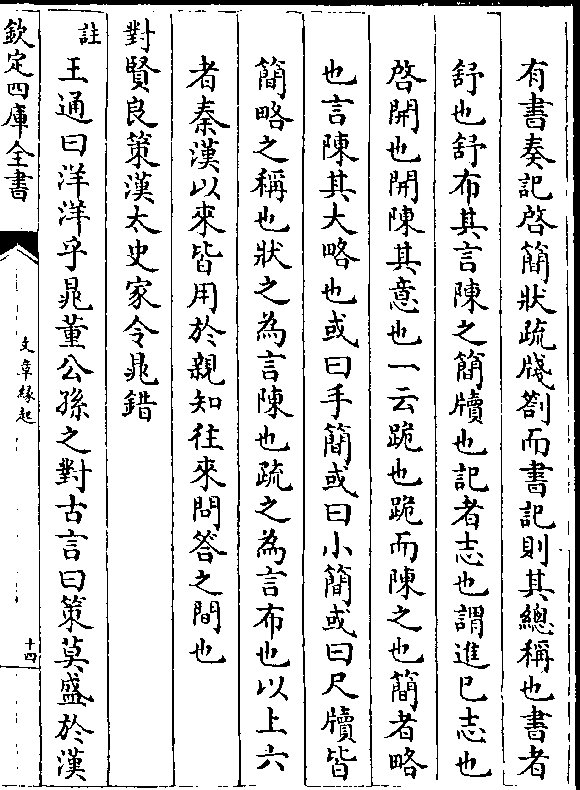 有書奏記啓簡狀疏牋劄而書記則其總稱也書者
舒也舒布其言陳之簡牘也記者志也謂進已志也
啓開也開陳其意也一云跪也跪而陳之也簡者略
也言陳其大略也或曰手簡或曰小簡或曰尺牘皆
簡略之稱也狀之為言陳也疏之為言布也以上六
者秦漢以來皆用於親知往來問答之間也
對賢良策漢太史家令鼂錯
註王通曰洋洋乎鼂董公孫之對古言曰策莫盛於漢
欽定四庫全書
文章緣起
十四